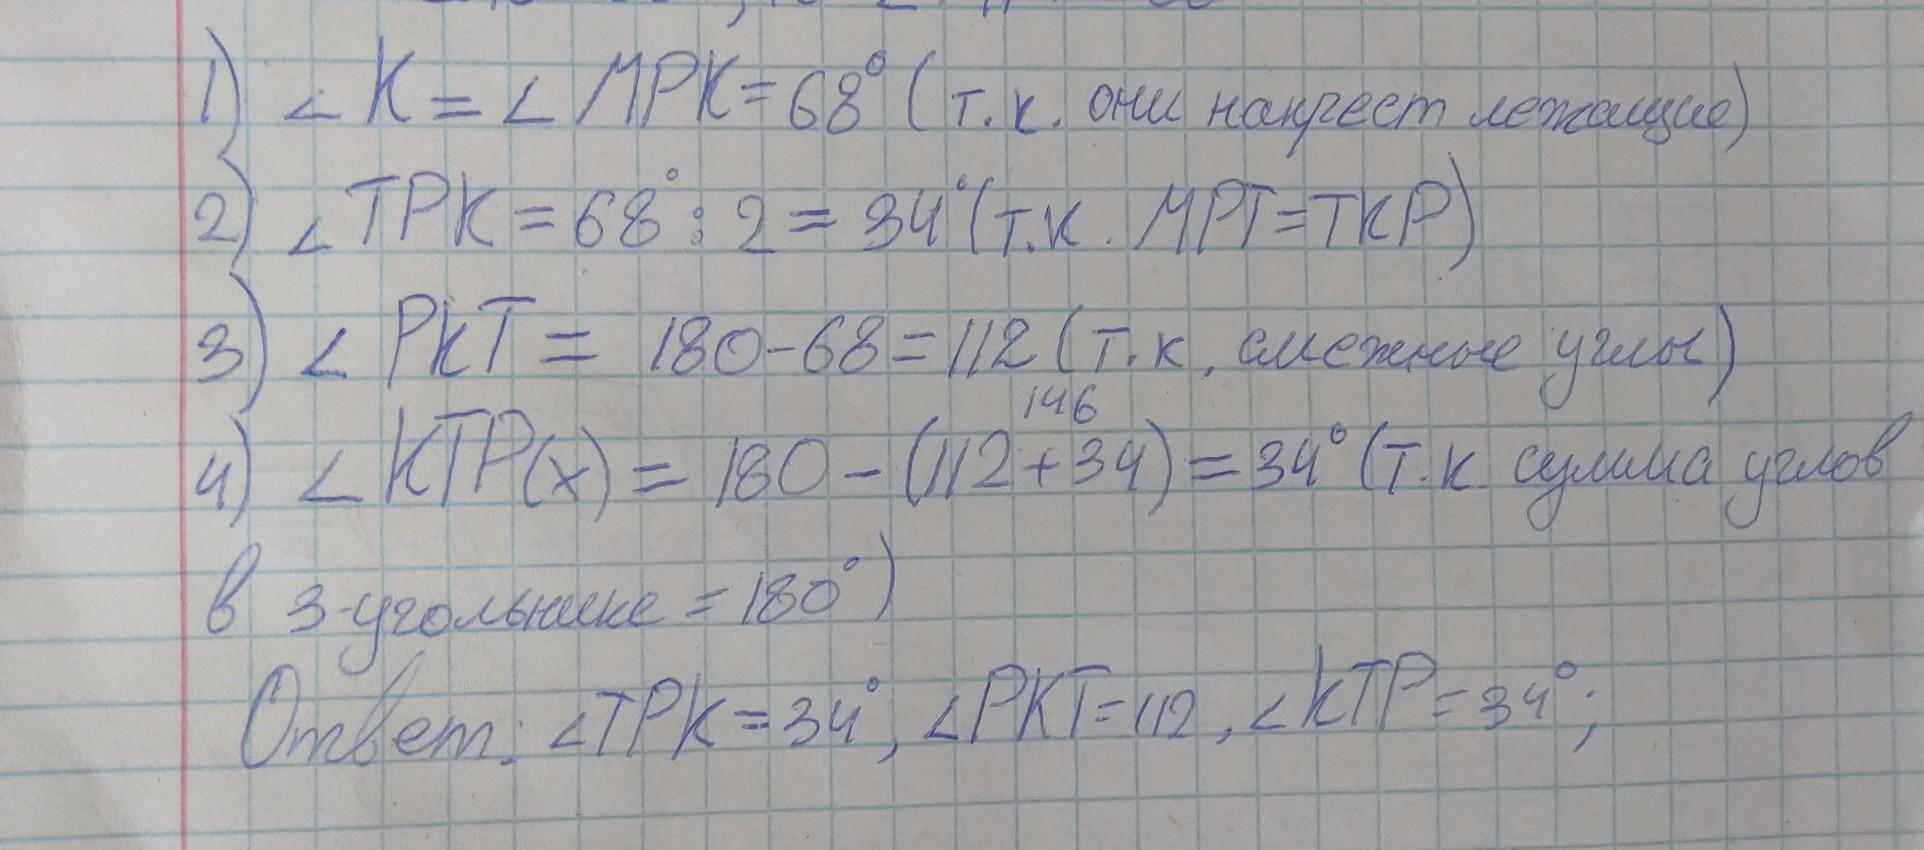 1) ∠ K = ∠ MPK = 68° (т.к. они накрест лежащие)
2) ∠ TPK = 68° : 2 = 34° (т.к. MPT = TKP)
3) ∠ PKT = 180 - 68 = 112 (т.к. смежные углы)
146
4) ∠ KTP(x) = 180 - (112 + 34) = 34° (т.к. сумма углов
в 3-угольнике = 180°)
Ответ: ∠TPK = 34°, ∠PKT = 112, ∠KTP = 34°;